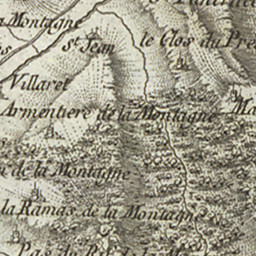 la Montagne
St Jean
le Clos du Pré
Villaret
Armentiere de la Montagne
de la Montagne
la Ramas de la Montagne